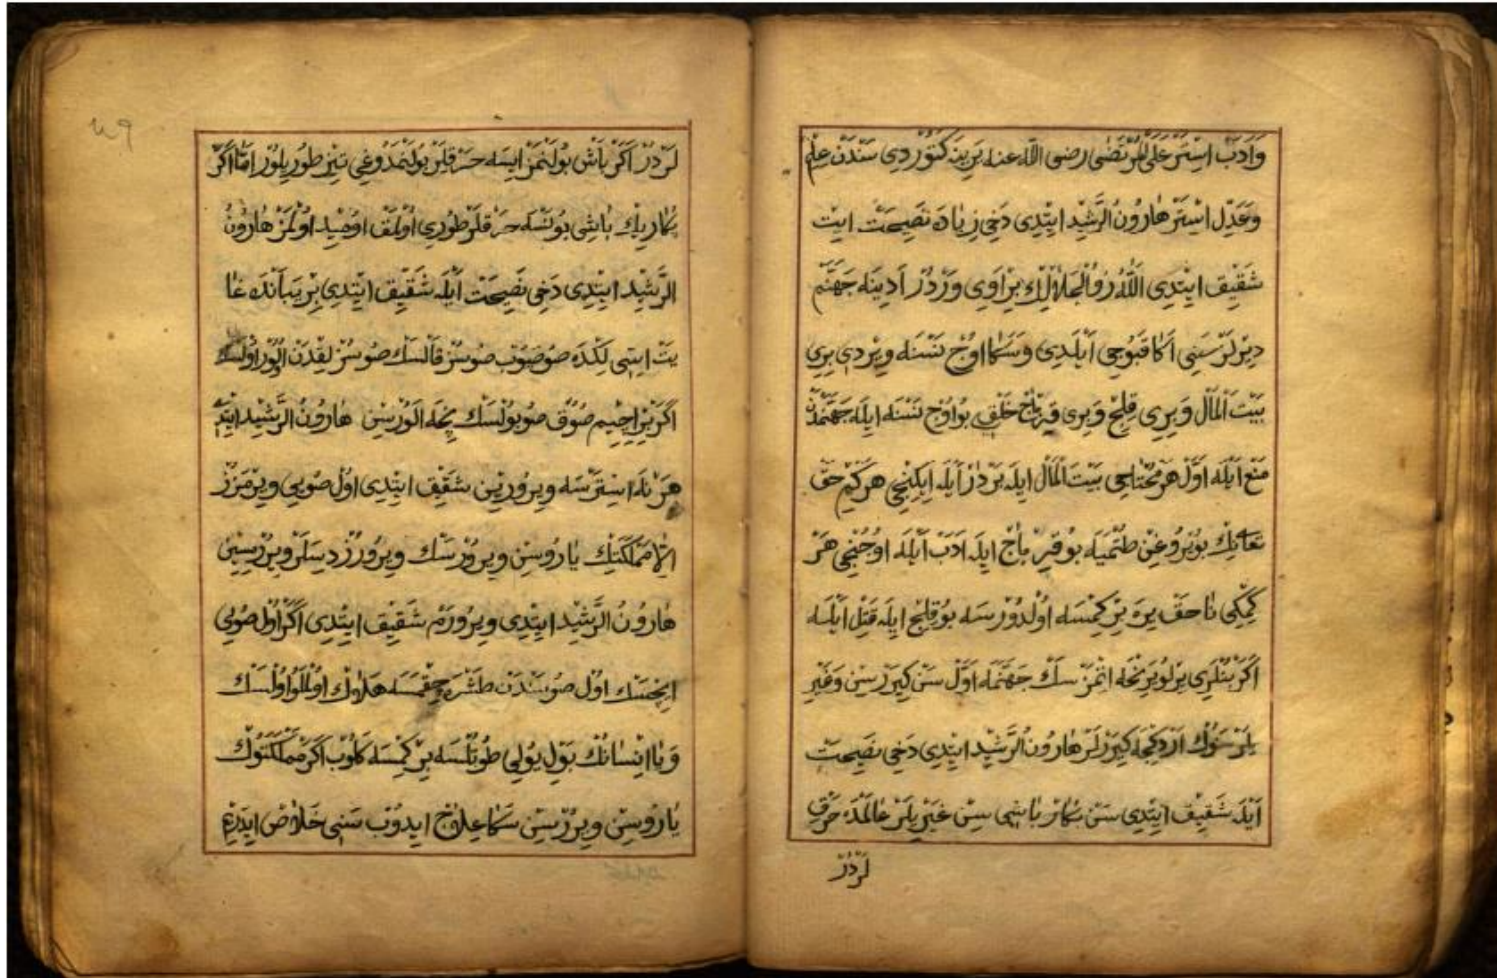 وَادَبْ اسْتَرْ عَلِيُّ الْمُرْتَضٰى رضى اللّٰه عنه يَرِينه كَتُورْدِى سَنْدَنْ عِلْمْ
وعَدِلْ اسْتَرْ هَارُونُ الرَّشِيدْ ايتِدِى دَخِى زِيَادَه نَصِيحَتْ ايتْ
شَقِيقْ ايتِدِى اللّٰه ذُو الْجَلَالِكْ بِرْ اَوِى وَرْدُرْ اَدِينَه جَهَنَّمْ
دِيرْلَرْ سَنِى اَكَا قَپُوجِى اَيْلَدِى وَسَكَا اوُچْ نَسْنَه وِيرْدِى بِرِى
بَيْتَ الْمَالْ وَبِرِى قِلِجْ وَبِرِى قِرْبَاجْ خَلْقِى بُو اوُچْ نَسْنَه ايلَه جَهَنَّمْدَنْ
مَنْعْ اَيْلَه اَوَّلْ هَرْ مُحْتَاجِى بَيْتَ الْمَالْ ايلَه بَرْدَارْ اَيْلَه ايكِنْجِى هَرْكِمْ حَقْ
تَعَالَى‌نِكْ بُوْيرُوغِنْ طُتْمَيَه بُو قِرْبَاجْ ايلَه اَدَبْ اَيْلَه اوُچُنْجِى هَرْ
كِمْكِى نَاحَقْ يَرَه بِرْ كِمْسَه اوُلْدُورْسَه بُو قِلِجْ ايلَه قَتِلْ اَيْلَسَه
اَكَرْ بُنْلَرِى بِرْلُوبِرِنْجَه اتْمَزْسَكْ جَهَنَّمَه اَوَّلْ سَنْ كِيرَرْسِنْ وَغَيْرِ
يلَرْ سَنُوكْ اَرْدِكْجَه كِيرَرْلَرْ هَارُونُ الرَّشِيدْ ايتِدِى دَخِى نَصِيحَتْ
اَيْلَه شَقِيقْ ايتِدِى سَنْ بِكَارْ بَاشِى سِنْ غَيْرِيلَرْ عَالَمْدَه حَرْقِ
لَرْدُرْ
لَرْدُرْ اَكَرْ بَاشْ بُولَنْمَزْ ايسَه حَرْقِلَرْ بُولَنْمَدُوغِى تِيزْ طُورِيلُورْ اِمَّا اَكَرْ
بِكَارِيكْ بَاشِى بُولَنْسَه حَرْقِلَرْ طُورِى اوُلْمَقْ اوُمِيدْ اوُلْمَزْ هَارُونُ
الرَّشِيدْ ايتِدِى دَخِى نَصِيحَتْ اَيْلَه شَقِيقْ ايتِدِى بِرْ يَبَانْدَه غَا
يَتْ اسّى لِكْدَه صُوصَيُوبْ صُوسُزْ قَالْسَكْ صُوسُزْلِقْدَنْ الُورْ اوُلْسَكْ
اَكَرْ بِرْ اِچِيمْ صُوُقْ صُو بُولْسَكْ نِچَه الُورْسِنْ هَارُونُ الرَّشِيدْ ايتِدِى
هَرْ نَه اسْتَرْسَه وِيرُورِينْ شَقِيقْ ايتِدِى اوُلْ صُويِى وِيرْمَزُزْ
اِلَّا مَمْلَكَتِكْ يَارُوسِنْ وِيرُورْسَكْ وِيرُورُزْ دِسَلَرْ وِيرُرْسِينْ
هَارُونُ الرَّشِيدْ ايتِدِى وِيرُورَمْ شَقِيقْ ايتِدِى اَكَرْ اوُلْ صُويِى
اِيچْسَكْ اوُلْ صُو سَنْدَنْ طَشْرَه چِقْمَسَه هَلَاكْ اوُلْمَلُو اوُلْسَكْ
وَيَا انْسَانُكْ بَوْلْ يُولِى طُوتُلْسَه بِرْ كِمْسَه كَلُوبْ اَكَرْ مَمْلَكَتُوكْ
يَارُوسِنْ وِيرُرْسِنْ سَكَا عِلَاجْ ايدُوبْ سَنِى خَلَاصْ ايدَرِمْ